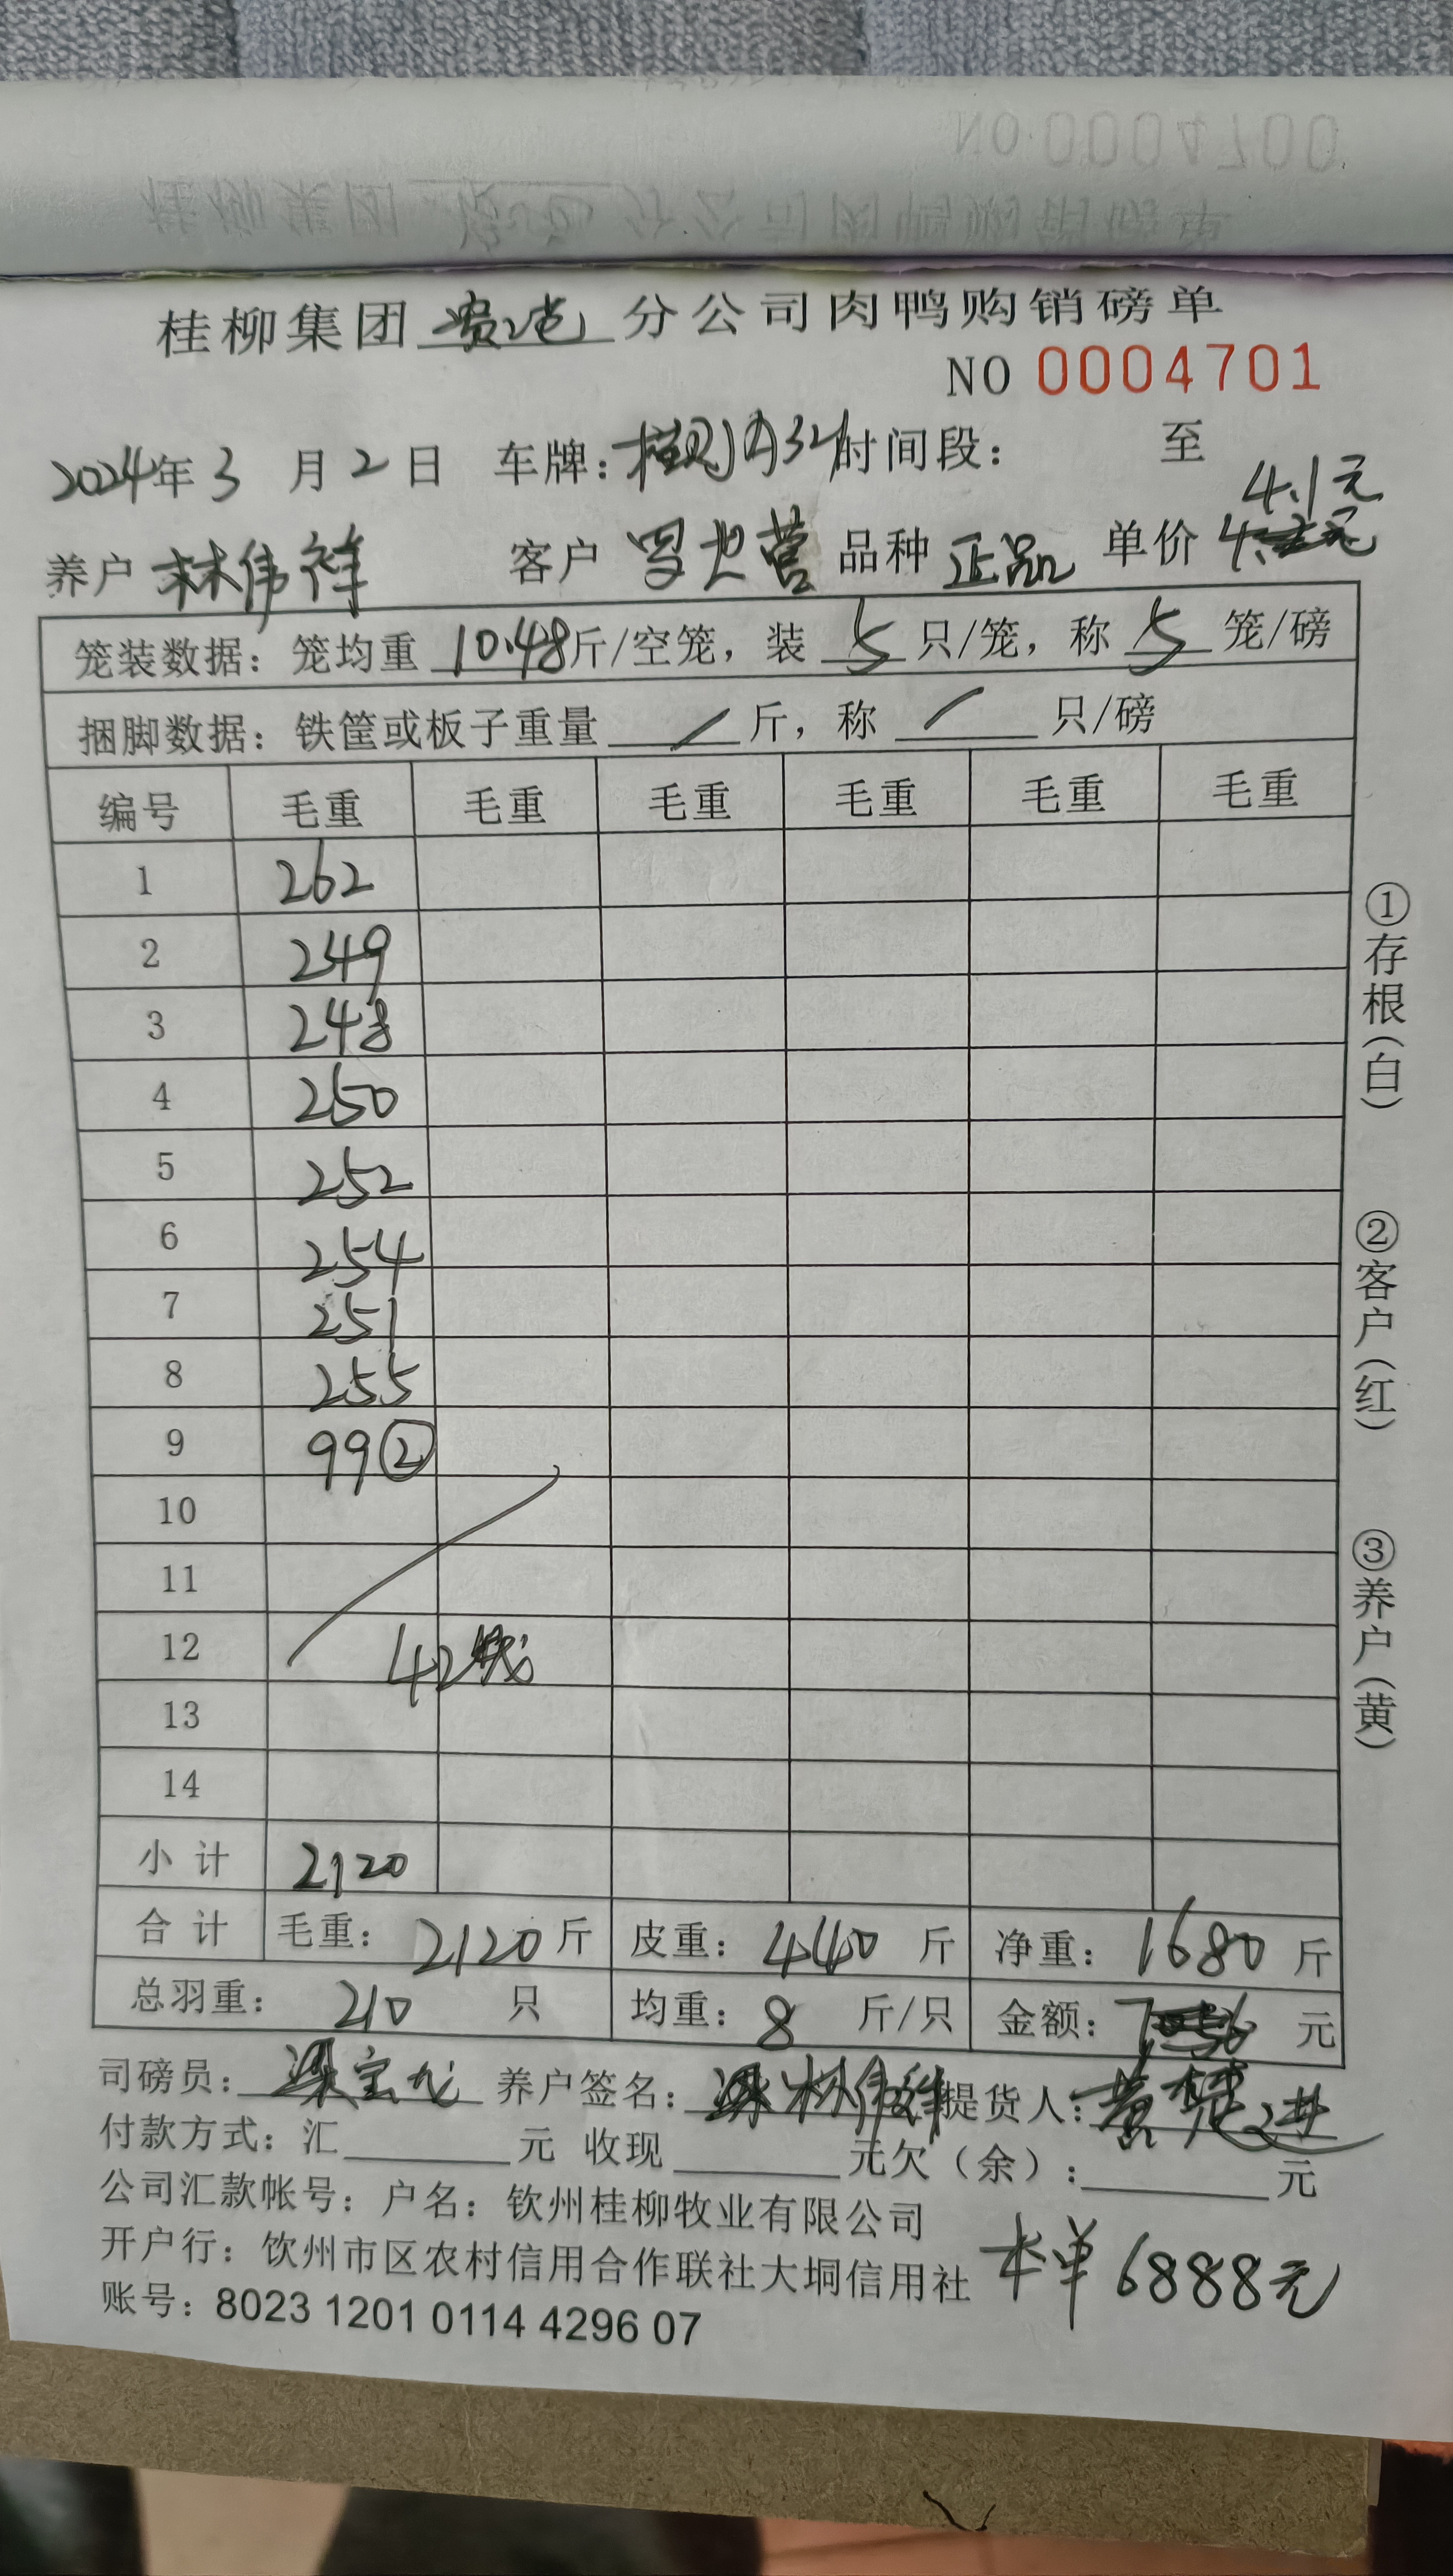 NO 0004700
桂柳集团 贵港 分公司肉鸭购销磅单
桂柳集团 贵港 分公司肉鸭购销磅单
NO 0004701
2024年3月2日 车牌： 时间段： 至
4.1元
养户 林伟祥 客户 品种 正品 单价
笼装数据：笼均重 10.48斤/空笼，装 5 只/笼，称 5 笼/磅
捆脚数据：铁筐或板子重量 / 斤，称 / 只/磅
编号 毛重 毛重 毛重 毛重 毛重 毛重
1 262
2 249
3 248
4 250
5 252
6 254
7 251
8 255
9 99②
10
11
12 42
13
14
小计 2120
合计 毛重：2120斤 皮重：440斤 净重：1680斤
总羽重：210 只 均重：8 斤/只 金额：7056 元
司磅员：梁宝龙 养户签名：林伟祥 提货人：
付款方式：汇 元 收现 元欠（余）： 元
公司汇款帐号：户名：钦州桂柳牧业有限公司
开户行：钦州市区农村信用合作联社大垌信用社 本单6888元
账号：8023 1201 0114 4296 07
①存根（白）
②客户（红）
③养户（黄）